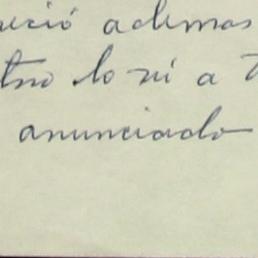 ució ademas
tro lo ni a t
anunciado